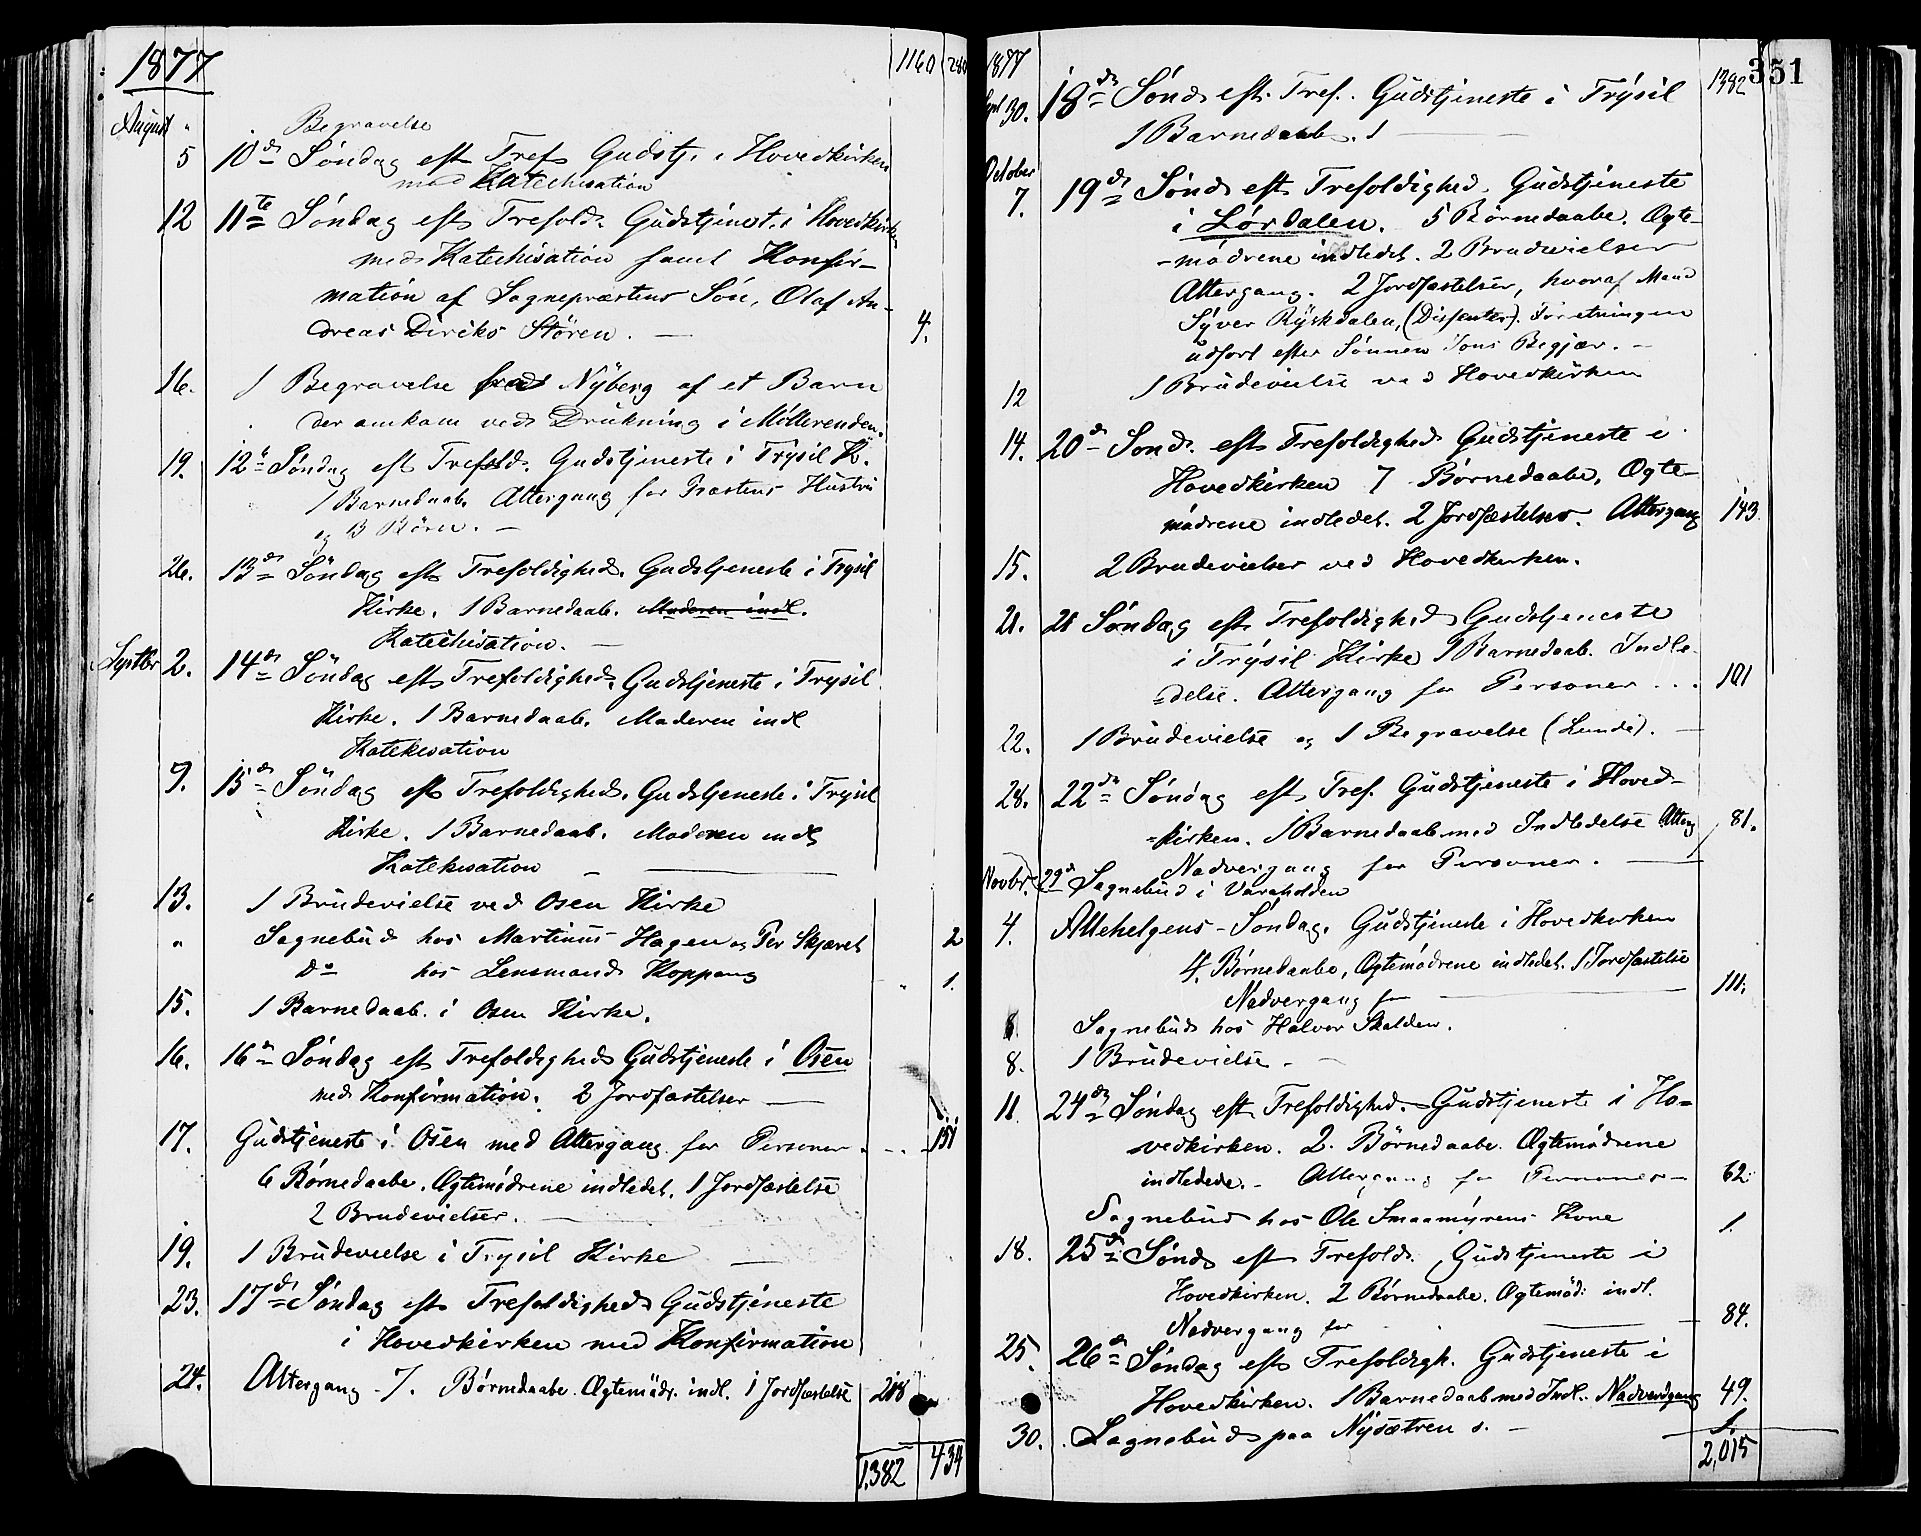 1877 1160 280
August "
Begravelse
5 10de Söndag eft Tref Gudstj. i Hovedkirken
med Katechisation
12 11te Söndag eft Trefold. Gudstjenst. i Hovedkirken
med Katechisation samt Konfir-
mation af Sognepræstens Sön, Olaf An-
dreas Diriks Stören. — 4.
16. 1 Begravelse Nyberg af et Barn
der omkom ved Drukning i Möllerenden.
19. 12te Söndag eft Trefold. Gudstjeneste i Trysil K.
1 Barnedaab. Altergang for Præstens Hustru
og 3 Börn. —
26. 13de Söndag eft Trefoldighed. Gudstjeneste i Trysil
Kirke. 1 Barnedaab. Moderen indl.
Katechisation. —
Septbr 2. 14de Söndag eft Trefoldighed. Gudstjeneste i Trysil
Kirke. 1 Barnedaab. Moderen indl
Katekisation
9. 15de Söndag eft Trefoldighed. Gudstjeneste i Trysil
Kirke. 1 Barnedaab. Moderen indl
Katekisation —
13. 1 Brudevielse ved Osen Kirke
" Sognebud hos Martinus Hagen og Per Skjæret 2
do hos Lensmand Koppang " 1.
15. 1 Barnedaab. i Osen Kirke.
16. 16de Söndag eft Trefoldighed Gudstjeneste i Osen
med Konfirmation. 2 Jordfæstelser —
17. Gudstjeneste i Osen med Altergang for Personer . - . - 151
6 Börnedaabe. Ægtemödrene indledet. 1 Jordfæstelse
2 Brudevielser. —
19. 1 Brudevielse i Trysil Kirke —
23. 17de Söndag eft Trefoldighed Gudstjeneste
i Hovedkirken med Konfirmation
24. Altergang - 7. Börnedaabe. Ægtemödr. indl. 1 Jordfæstelse 218
1,382 434
1877 351
Sept 30. 18de Sönd. eft. Tref. Gudstjeneste i Trysil 1382
1 Barnedaab. 1 —
October
7. 19de Sönd eft Trefoldighed. Gudstjeneste
i Lördalen. 5 Börnedaabe. Ægte-
-mödrene indledet. 2 Brudevielser
Altergang. 2 Jordfæstelser, hvoraf Mand
Syver Ryskdalen, (Dissenter). Forretningen
udfört efter Sönnen Begjær. —
12 1 Brudevielse ved Hovedkirken
14. 20de Sönd. eft Trefoldighed Gudstjeneste i
Hovedkirken 7 Börnedaabe, Ægte-
mödrene indledet. 2 Jordfæstelser. Altergang 143.
15. 2 Brudevielser ved Hovedkirken.
21. 21 Söndag eft Trefoldighed Gudstjeneste
i Trysil Kirke 1 Barnedaab. Indle-
-delse. Altergang for Personer . . . 101
22. 1 Brudevielse og 1 Begravelse (Lunde). —
28. 22de Söndag eft Tref. Gudstjeneste i Hoved-
-kirken. 1 Barnedaab med Indledelse Alterg 81.
Nadvergang for Personer. —
Novbr. 29de Sognebud i Varaholden
4. Allehelgens-Söndag. Gudstjeneste i Hovedkirken
4. Börnedaabe, Ægtemödrene indledet. 1 Jordfæstelse
Nadvergang for — 111.
Sognebud hos Halvor Skolden.
8. 1 Brudevielse. —
11. 24de Söndag eft Trefoldighed. Gudstjeneste i Ho-
vedkirken. 2. Börnedaabe. Ægtemödrene
indledede. - Altergang for Personer — 62
Sognebud hos Ole Smaamyrens Kone 1.
18. 25de Sönd eft Trefold. Gudstjeneste i
Hovedkirken. 2 Börnedaabe. Ægtemöd: indl.
Nadvergang for — 84.
25. 26de Söndag eft Trefoldigh. Gudstjeneste i
Hovedkirken. 1 Barnedaab med Indl. Nadverdgang 49.
30. Sognebud paa Nysætren s. — 1.
2,015